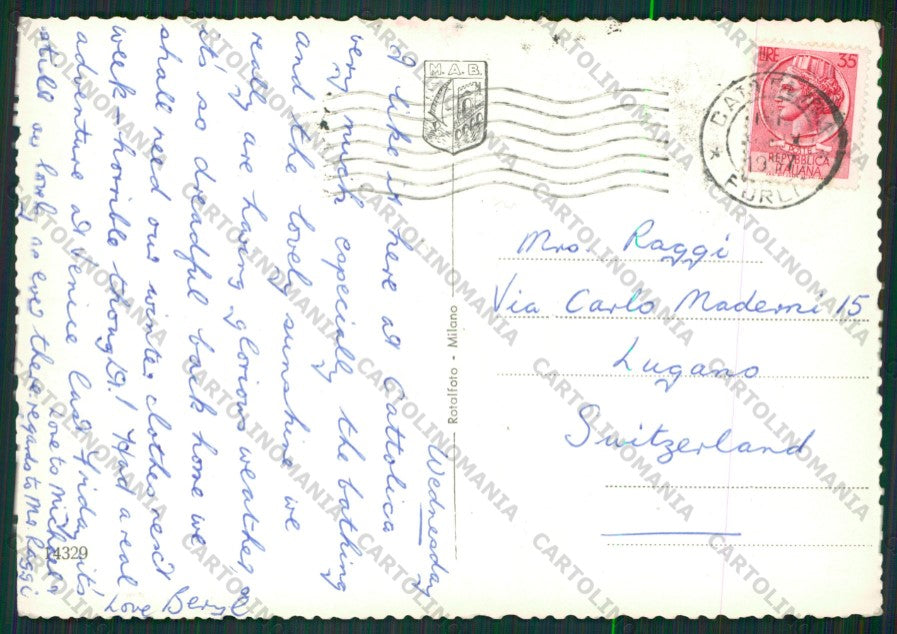 Wednesday
I like it here at Cattolica
very much especially the bathing
and the lovely sunshine we
really are having glorious weather, as
it's so dreadful back home we
shall need our winter clothes next
week horrible thought! Had a real
adventure at Venice last Friday it's
still as lovely as ever there. regards to Mr Raggi
Love to Michael
Love Beryl
14329
Rotalfoto - Milano
M.A.B.
LIRE 35
REPUBBLICA
ITALIANA
FORLI
Mrs. Raggi
Via Carlo Maderni 15
Lugano
Switzerland
CARTOLINOMANIA